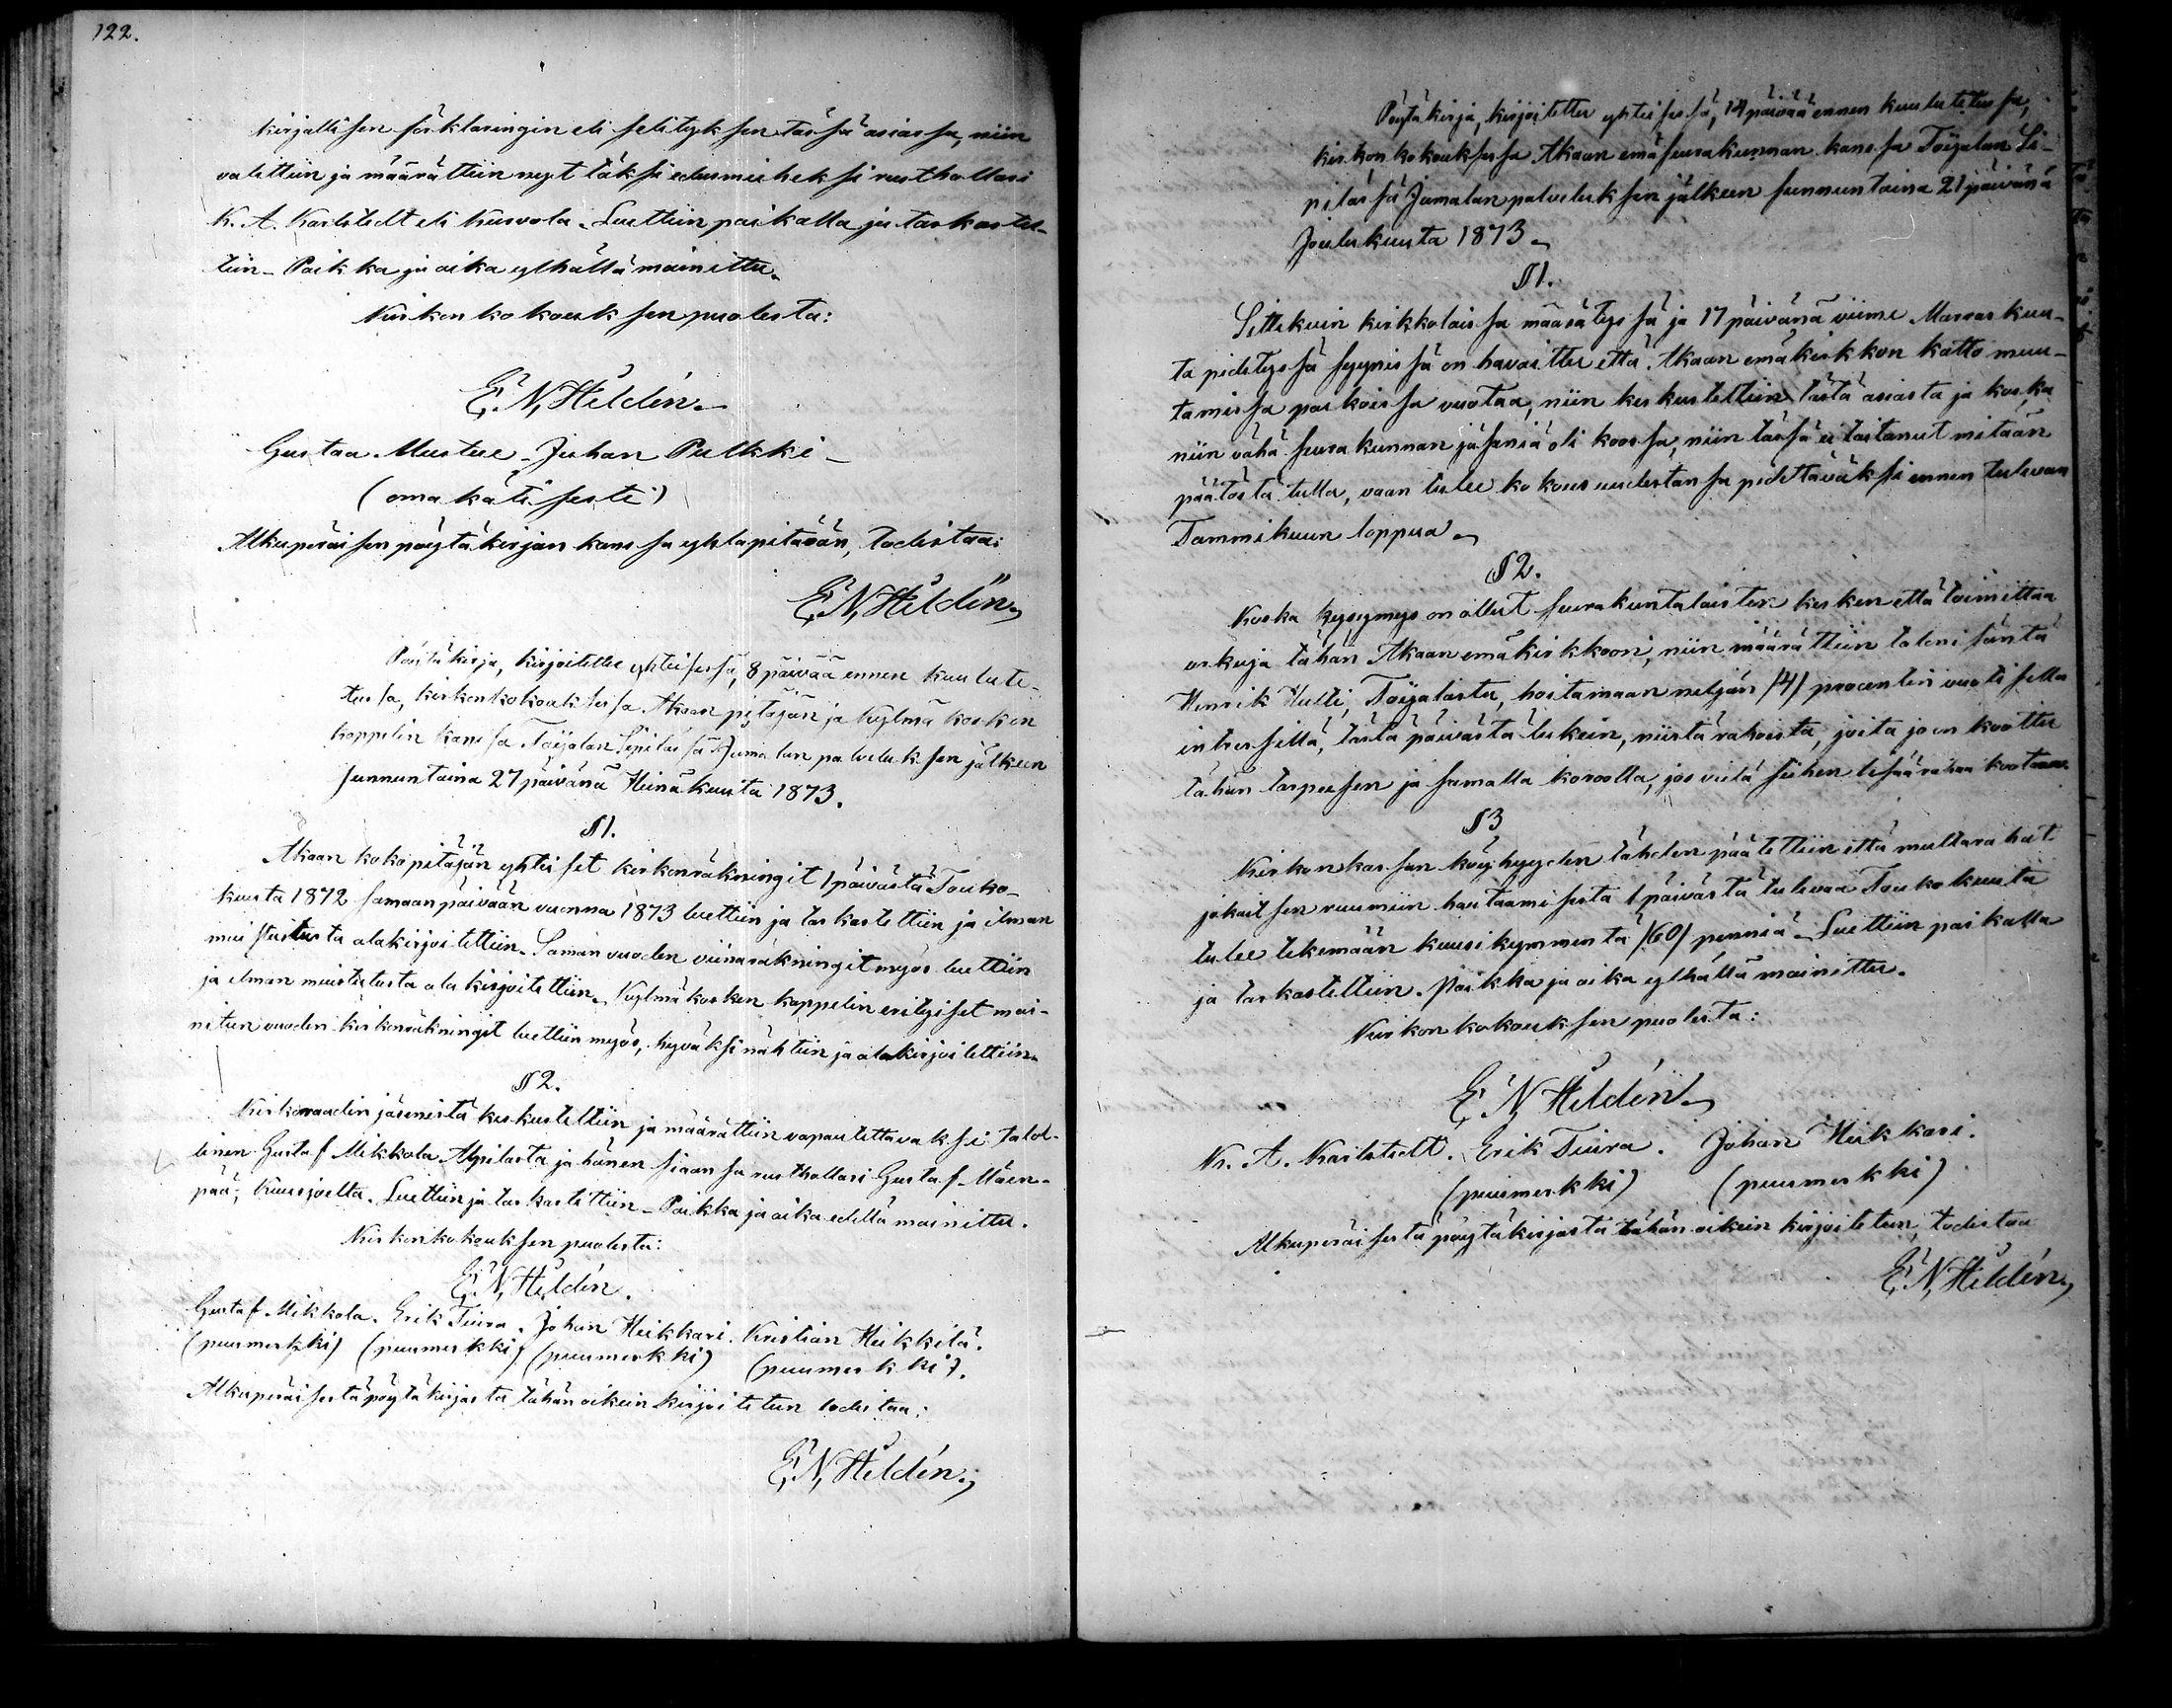 122.
kirjallisen förklaringin eli selityksen tässä asiassa, niin
valittiin ja määrättiin nyt täksi edusmieheksi rusthollari
K. A. Karlstedt eli Kurvola. Luettiin paikalla ja tarkastet-
tiin. Paikka ja aika ylhällä mainittu.
Kirkonkokouksen puolesta:
E. N. Hildén.
Gustaa Mustue. Juhan Pulkki
(omakätisesti)
Alkuperäisen pöytäkirjan kanssa yhtäpitävän, todistaa:
E. N. Hildén
Pöytäkirja, kirjoitettu yhteisessä, 8 päivää ennen kuulute-
tussa, kirkonkokouksessa Akaan pitäjän ja Kylmäkosken
kappelin kanssa Toijalan Sipilässä Jumalan palveluksen jälkeen
sunnuntaina 27 päivänä Heinäkuuta 1873.
§ 1.
Akaan koko pitäjän yhteiset kirkonräkningit 1 päivästä Touko-
kuuta 1872 samaan päivään vuonna 1873 luettiin ja tarkastettiin ja ilman
muistutusta alakirjoitettiin. Saman vuoden viinaräkningit myös luettiin
ja ilman muistutusta alakirjoitettiin. Kylmäkosken kappelin erityiset mai-
nitun vuoden kirkonräkningit luettiin myös, hyväksi nähtiin ja alakirjoitettiin.
§ 2.
Kirkonraadin jäsenistä keskusteltiin ja määrättiin vapautettavaksi talol-
linen Gustaf Mikkola Alpilasta ja hänen siaansa rusthollari Gustaf Mäen-
pää, Kuurjoelta. Luettiin ja tarkastettiin. Paikka ja aika edellä mainittu.
Kirkonkokouksen puolesta:
E. N. Hildén.
Gustaf Mikkola. Erik Tiura. Johan Heikkari. Kristian Heikkilä.
(puumerkki) (puumerkki) (puumerkki) (puumerkki).
Alkuperäisestä pöytäkirjasta tähän oikein kirjoitetun todistaa:
E. N. Hildén.
Pöytäkirja, kirjoitettu yhteisessä, 14 päivää ennen kuulutetussa,
kirkonkokouksessa Akaan emäseurakunnan kanssa Toijalan Si-
pilässä Jumalan palveluksen jälkeen sunnuntaina 21 päivänä
Joulukuuta 1873.
§ 1.
Sittekuin kirkkolaissa määrätyssä ja 17 päivänä viime Marraskuu-
ta pidetyssä syynissä on havaittu että Akaan emäkirkkon katto muu-
tamissa paikoissa vuotaa, niin keskusteltiin tästä asiasta ja koska
niin vähä seurakunnan jäseniä oli koossa, niin tässä ei taitanut mitään
päätöstä tulla, vaan tulee kokous uudestansa pidettäväksi ennen tulevan
Tammikuun loppua.
§ 2.
Koska kysymys on ollut seurakuntalaisten kesken että toimittaa
orkuja tähän Akaan emäkirkkoon, niin määrättiin talonisäntä
Henrik Hulli, Toijalasta, hoitamaan neljän /4/ procentin vuotisella
intressillä, tästä päivästä lukein, niistä rahoista, joita jo on koottu
tähän tarpeesen ja samalla korolla, jos vielä siihen lisää rahaa kootaan.
§ 3
Kirkonkassan köyhyyden tähden päätettiin että multarahat
jokaitsen ruumiin hautaamisesta 1 päivästä tulevaa Toukokuuta
tulee tekemään kuusikymmentä /60/ penniä. Luettiin paikalla
ja tarkastettiin. Paikka ja aika ylhällä mainittu.
Kirkonkokouksen puolesta:
E. N. Hildén.
K. A. Karlstedt. Erik Tiura. Johan Heikkari.
(puumerkki) (puumerkki)
Alkuperäisestä pöytäkirjasta tähän oikein kirjoitetun, todistaa
E. N. Hildén.